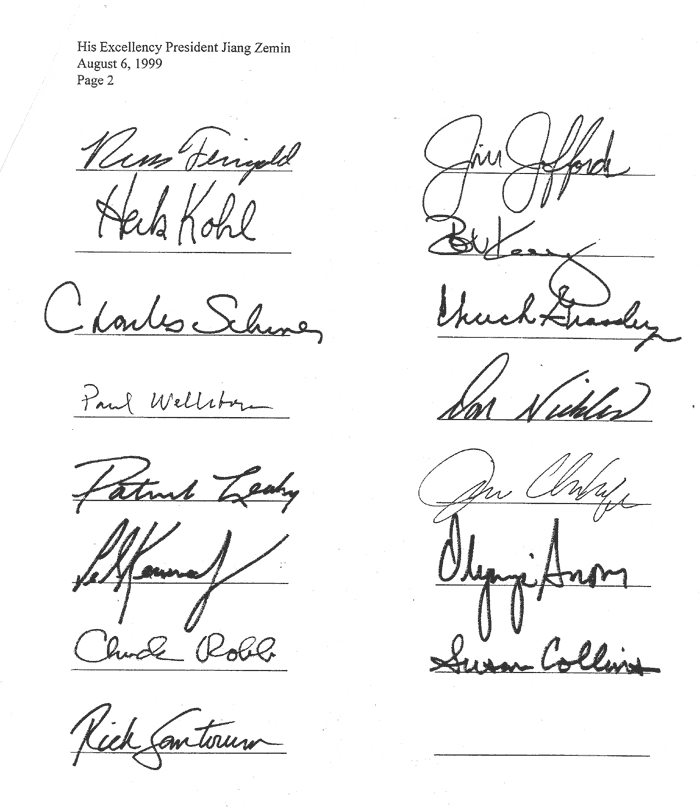 His Excellency President Jiang Zemin
August 6, 1999
Page 2
Russ Feingold
Herb Kohl
Charles Schumer
Paul Wellstone
Patrick Leahy
Ted Kennedy
Chuck Robb
Rick Santorum
Jim Jeffords
Bob Kerrey
Chuck Grassley
Don Nickles
Olympia Snowe
Susan Collins